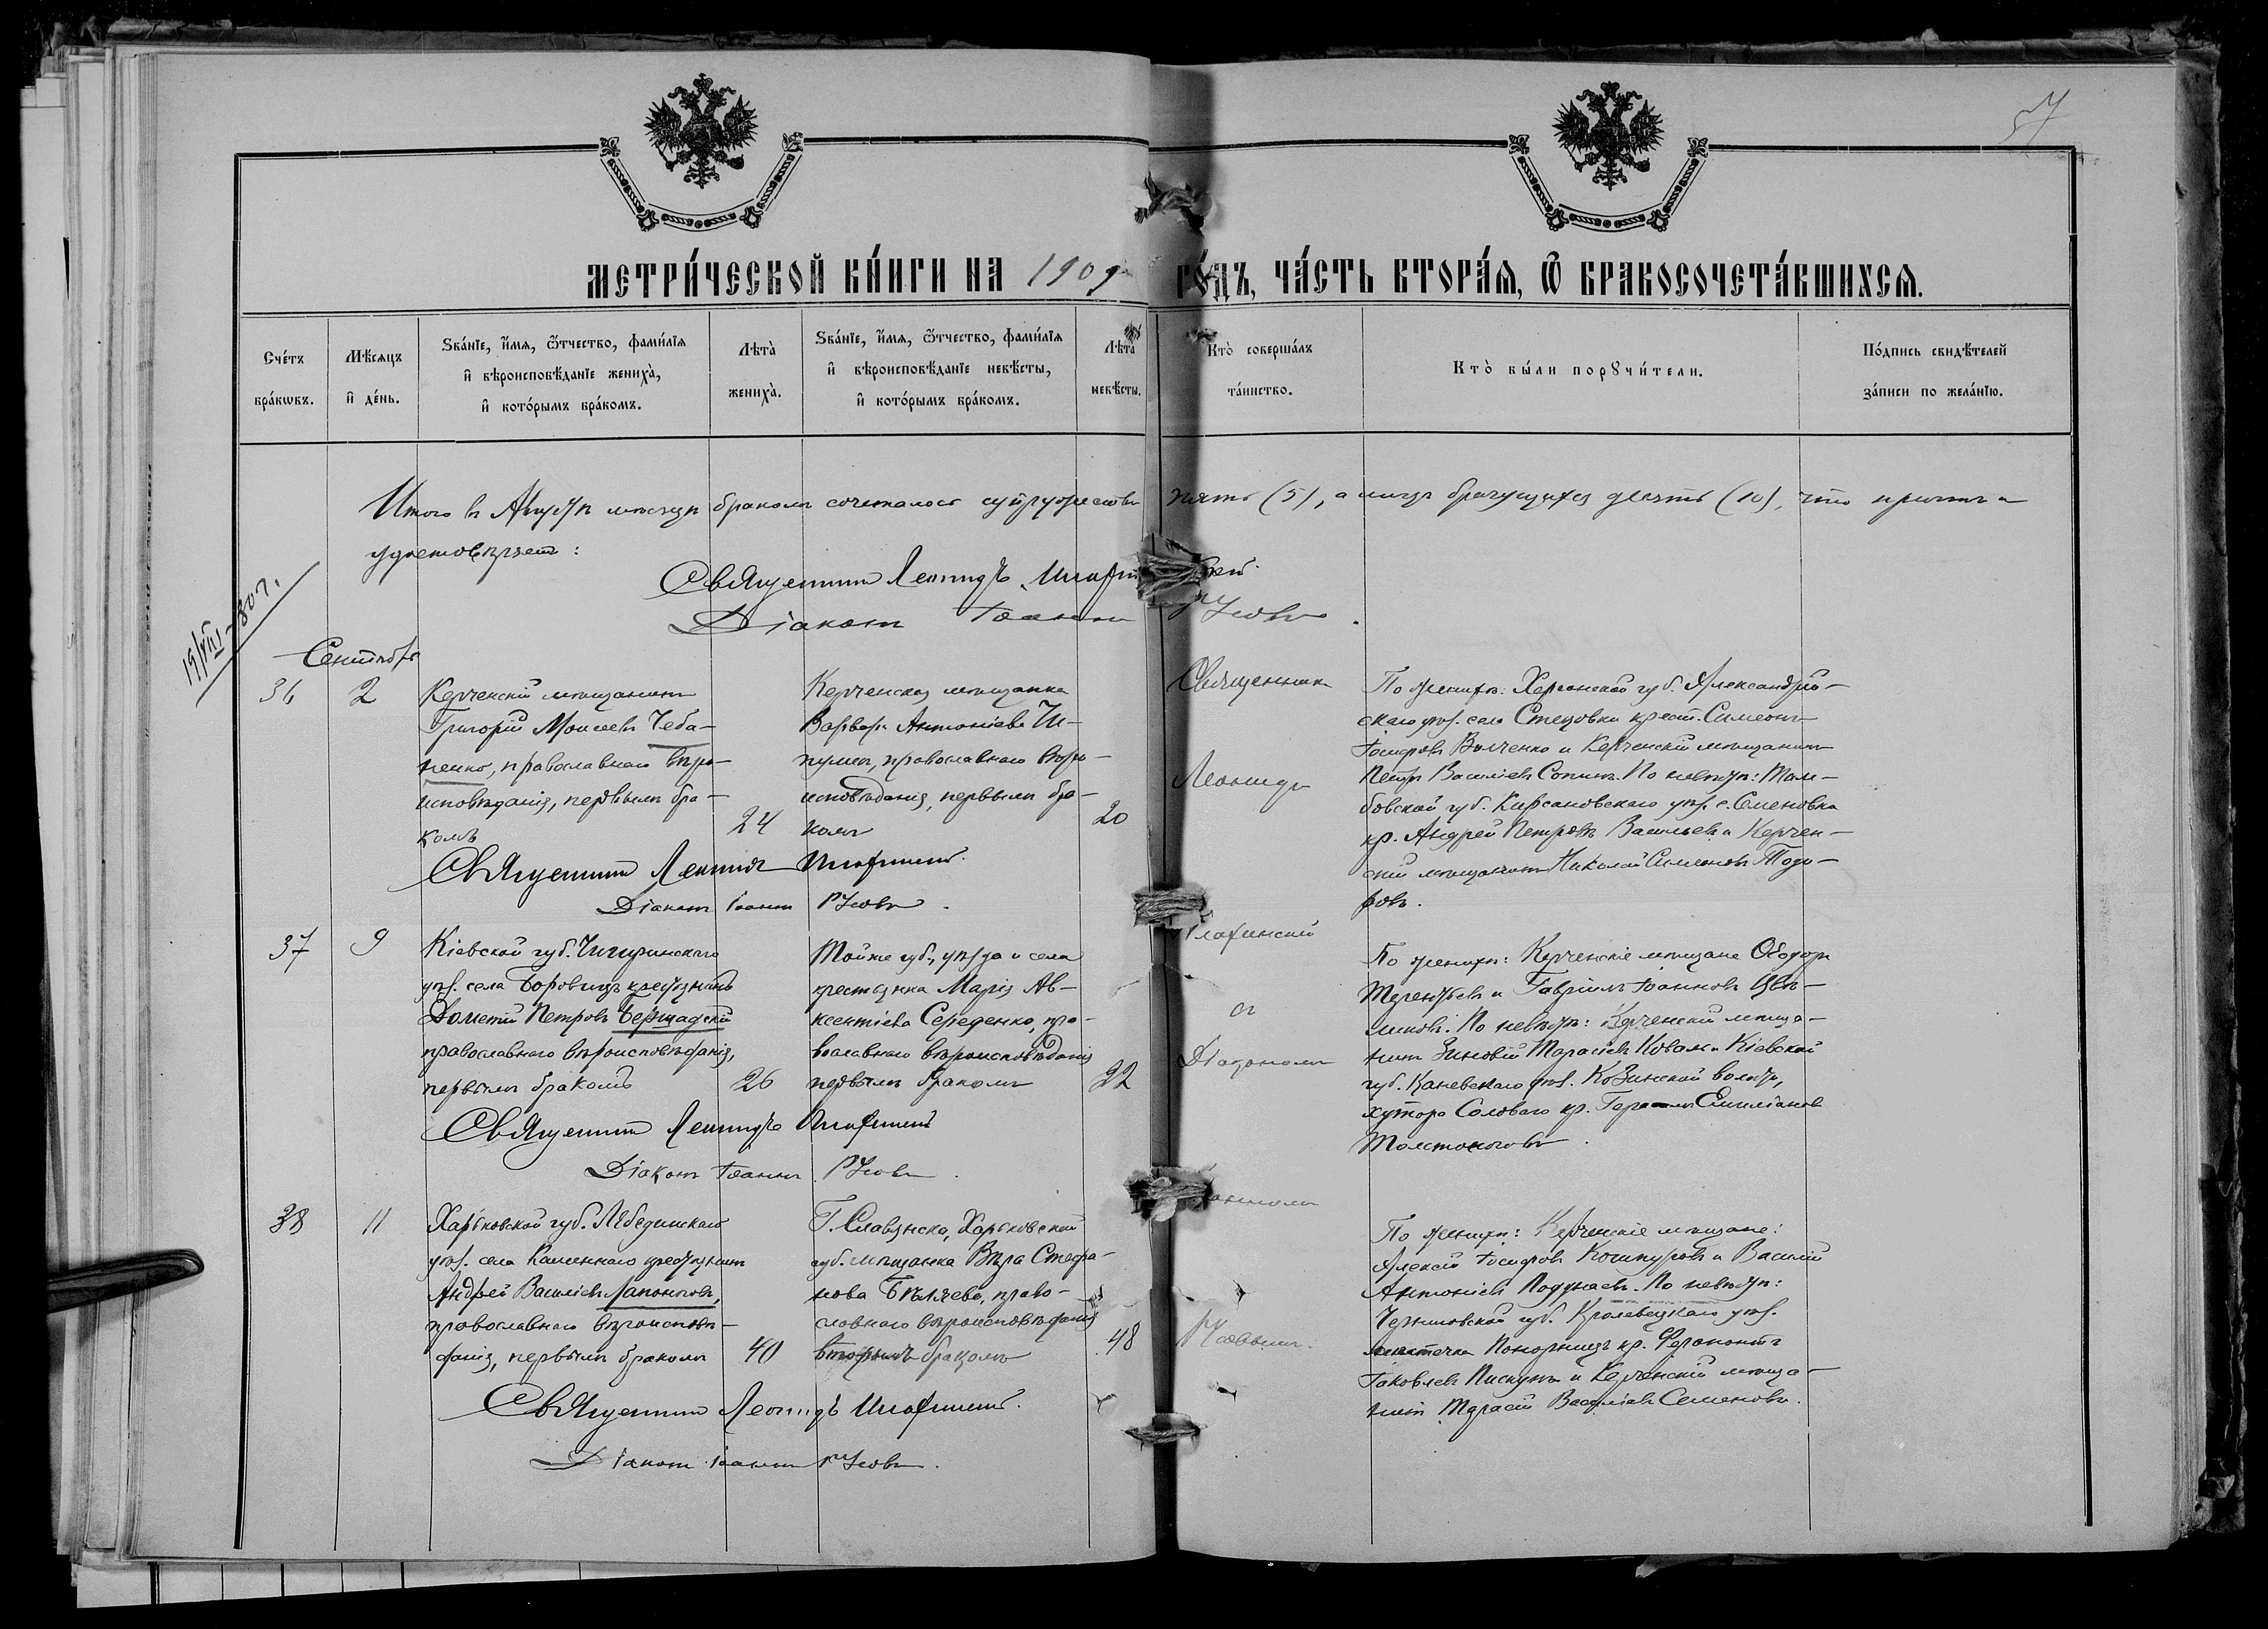 57
МЕТРИ́ЧЕСКОЙ КНИ́ГИ НА 1909 ГО́ДЪ, ЧА́СТЬ ВТОРА́Я, Ѿ БРАКОСОЧЕТА́ВШИХСЯ.
Сче́тъ бра́кωвъ.
Мѣ́сяцъ и҆ де́нь.
Ѕва́нїе, и҆́мя, ѻ҆́тчество, фами́лїя
и҆ вѣроисповѣ́данїе жениха̀,
и҆ кото́рымъ бра́комъ.
Лѣта̀ жениха̀.
Ѕва́нїе, и҆́мя, ѻ҆́тчество, фами́лїя
и҆ вѣроисповѣ́данїе невѣ́сты,
и҆ кото́рымъ бра́комъ.
Лѣта̀ невѣ́сты.
Кто̀ соверша́лъ та́инство.
Кто̀ бы́ли порꙋчи́тели.
По́дпись свидѣ́телей за́писи по жела́нїю.
Итого въ Августѣ мѣсяцѣ бракомъ сочеталось супружествъ пять (5), а лицъ брачущихся десять (10), что причтъ и
удостовѣряетъ:
Священникъ Леонидъ
Діаконъ Іоаннъ Русовъ.
Сентябрь
36
2
Керченскій мѣщанинъ
Григорій Моисеевъ Чеба-
ненко, православнаго вѣро-
исповѣданія, первымъ бра-
комъ
24
Керченская мѣщанка
Варвара Антоніева Чи-
, православнаго вѣро-
исповѣданія, первымъ бра-
комъ
20
Священникъ
Леонидъ
По женихѣ: Херсонской губ. Александрій-
скаго уѣз. села Стецовки крест. Симеонъ
Іосифовъ Волченко и Керченскій мѣщанинъ
Петръ Василіевъ Сопинъ. По невѣстѣ: Там-
бовской губ. Кирсановскаго уѣз. с. Семеновка
кр. Андрей Петровъ Васильевъ и Керчен-
скій мѣщанинъ Николай Симеоновъ Тодо-
ровъ.
Священникъ Леонидъ
Діаконъ Іоаннъ Русовъ.
37
9
Кіевской губ. Чигиринскаго
уѣз. села Боровицъ крестьянинъ
Дометій Петровъ Бершадскій
православнаго вѣроисповѣданія,
первымъ бракомъ
26
Той же губ., уѣзда и села
крестьянка Марія Ав-
ксентіева Середенко, пра-
вославнаго вѣроисповѣданія
первымъ бракомъ
22
съ
Діакономъ
По женихѣ: Керченскіе мѣщане Ѳеодоръ
Терентьевъ и Гавріилъ Іоанновъ Цвѣ-
. По невѣстѣ: Керченскій мѣща-
нинъ Зиновій Тарасіевъ Коваль и Кіевской
губ. Каневскаго уѣз. Козинской волости,
хутора Соловаго кр. Герасимъ Емиліановъ
Толстоноговъ.
Священникъ Леонидъ
Діаконъ Іоаннъ Русовъ.
38
11
Харьковской губ. Лебединскаго
уѣз. села Каменнаго крестьянинъ
Андрей Василіевъ Лапоноговъ,
православнаго вѣроисповѣ-
данія, первымъ бракомъ
40
Г. Славянска, Харьковской
губ. мѣщанка Вѣра Стефа-
нова Бѣляева, право-
славнаго вѣроисповѣданія
вторымъ бракомъ
48
Іоанномъ
Русовымъ.
По женихѣ: Керченскіе мѣщане:
Алексій Іосифовъ и Василій
Антоніевъ Подунаевъ. По невѣстѣ:
Черниговской губ. Кролевецкаго уѣз.
мѣстечка Понорницъ кр. Ферапонтъ
Іаковлевъ Пискунъ и Керченскій мѣща-
нинъ Тарасій Василіевъ Семеновъ.
Священникъ Леонидъ
Діаконъ Іоаннъ Русовъ.